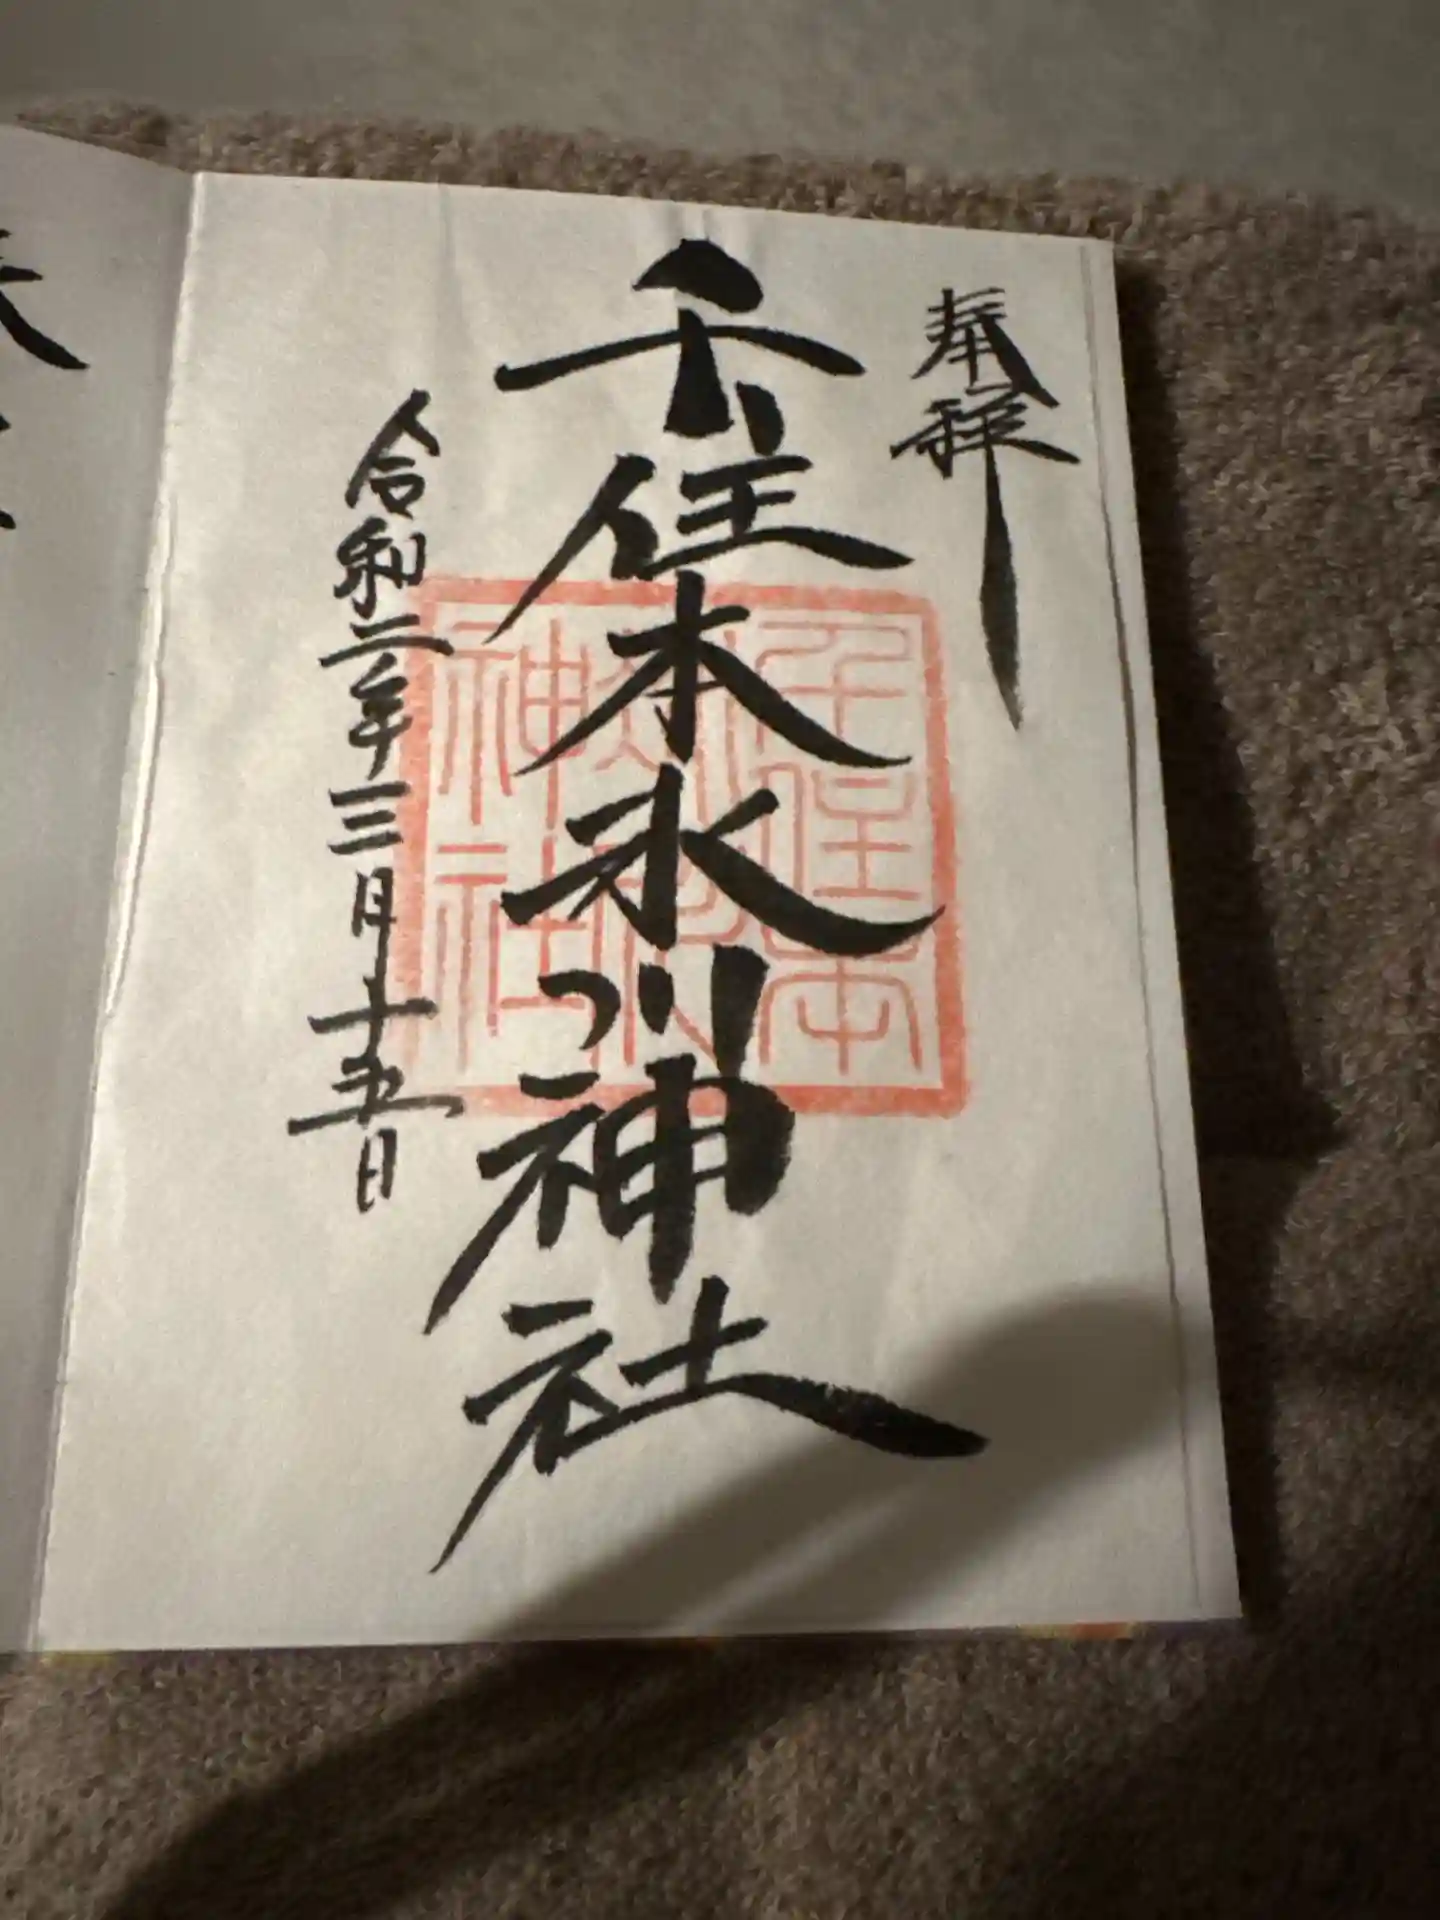 奉拝
千住本氷川神社
千住本
氷川
神社
令和二年三月十五日